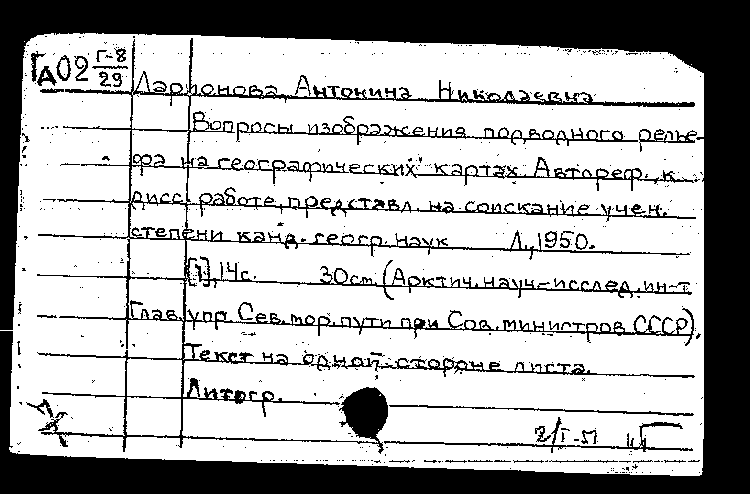 ГА02 Г-8/29
Ларионова, Антонина Николаевна
Вопросы изображения подводного релье-
фа на географических картах. Автореф. к
дисс. работе, представл. на соискание учен.
степени канд. геогр. наук Л., 1950.
[1], 14с. 30см. (Арктич. науч-исслед. ин-т
Глав. упр. Сев. мор. пути при Сов. министров СССР).
Текст на одной стороне листа.
Литогр.
2/I-51